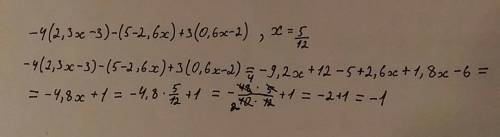 -4(2,3x-3)-(5-2,6x)+3(0,6x-2) , x=5/12
-4(2,3x-3)-(5-2,6x)+3(0,6x-2)=-9,2x+12-5+2,6x+1,8x-6=
=-4,8x+1=-4,8·5/12+1=-(48·5)/(10·12)+1=-2+1=-1